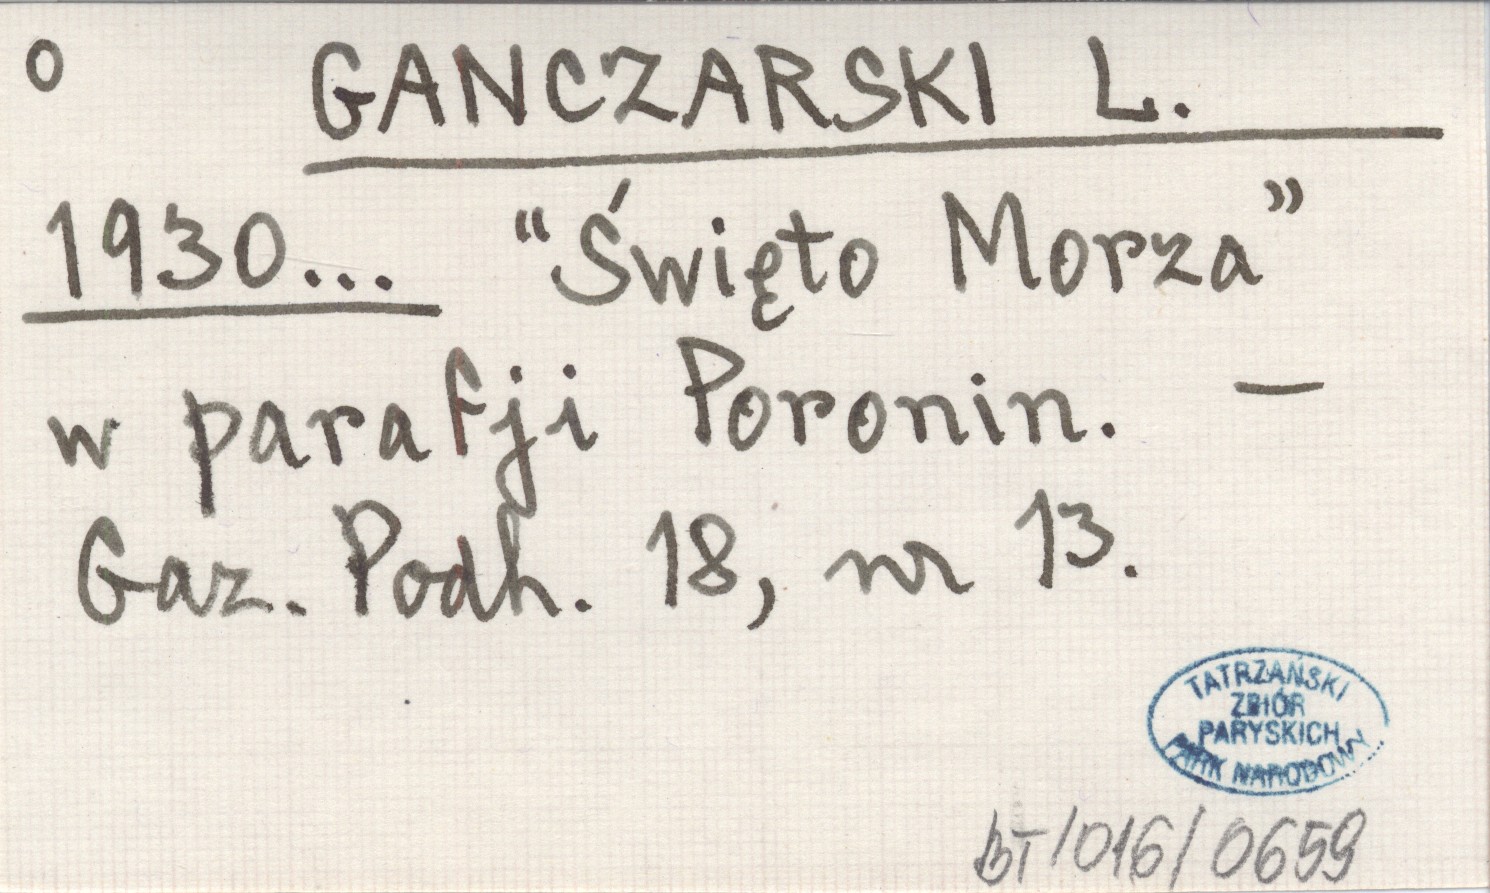 o GANCZARSKI L.
1930... “Święto Morza”
w parafji Poronin. —
Gaz. Podh. 18, nr 13.
TATRZAŃSKI
ZBIÓR
PARYSKICH
PARK NARODOWY
BT/016/0659